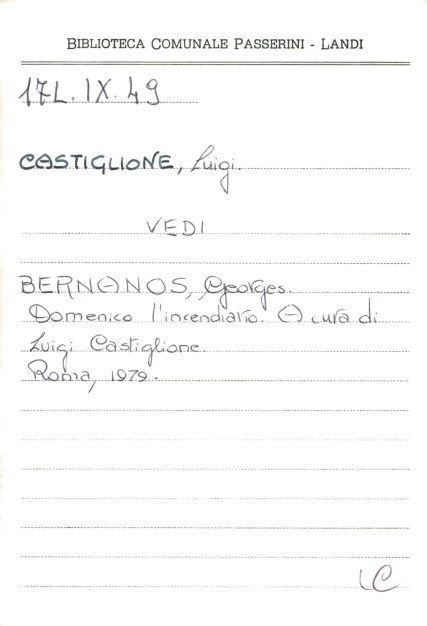 BIBLIOTECA COMUNALE PASSERINI - LANDI
17L. IX. 49
CASTIGLIONE, Luigi.
VEDI
BERNANOS, Georges.
Domenico l'incendiario. A cura di
Luigi Castiglione.
Roma, 1979.
LC